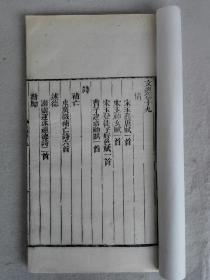 文選卷十九
情
宋玉高唐賦一首
宋玉神女賦一首
宋玉登徒子好色賦一首
曹子建洛神賦一首
詩
補亡
束廣微補亡詩六首
述德
謝靈運述祖德詩二首
勸勵